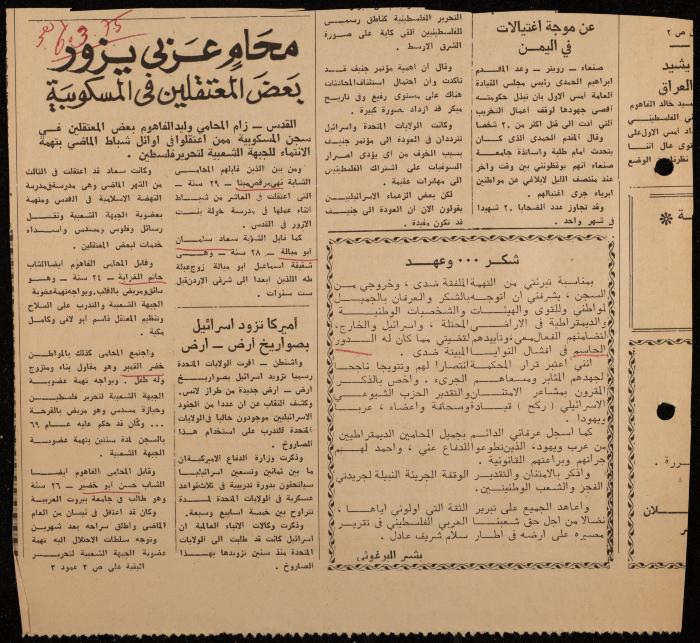 75 3 6
محامٍ عربي يزور
بعض المعتقلين في المسكوبية
القدس ـ زام المحامي وليد الفاهوم بعض المعتقلين في
سجن المسكوبية ممن اعتقلوا في اوائل شباط الماضي بتهمة
الانتماء للجبهة الشعبية لتحرير فلسطين .
ومن بين الذين قابلهم المحامي
الشابة نهى مرقص مينا ـ ٢٩ سنة ـ
التي اعتقلت في العاشر من شباط
اثناء عملها في مدرسة خولة بنت
الازور في القدس .
كما قابل الشابة سعاد سلمان
ابو ميالة ـ ٢٨ سنة ـ وهي
شقيقة اسماعيل ابو ميالة زوج عبلة
طه اللذين ابعدا الى شرقي الاردن قبل
ست سنوات .
وكانت سعاد قد اعتقلت في الثالث
من الشهر الماضي وهي مدرسة في مدرسة
النهضة الاسلامية في القدس ومتهمة
بعضوية الجبهة الشعبية ونقل
رسائل وفلوس ومسدس واسداء
خدمات لبعض المعتقلين .
وقابل المحامي الفاهوم ايضا الشاب
حاتم الغرابة ـ ٢٤ سنة ـ وهي
سائق ومريض بالقلب ويواجه تهمة عضوية
الجبهة الشعبية والتدرب على السلاح
وتنظيم المعتقل قاسم ابو لافي وكامل
مكية .
واجتمع المحامي كذلك بالمواطن
خضر القيمر وهو مقاول بناء ومتزوج
وله طفل . ويواجه تهمة عضوية
الجبهة الشعبية لتحرير فلسطين
وحيازة مسدس وهو مريض بالقرحة
... وكان قد حكم عليه عام ٦٩
بالسجن لمدة سنتين بتهمة عضوية
الجبهة الشعبية .
وقابل المحامي الفاهوم ايضا
الشاب حسن ابو خضير ـ ٢٦ سنة
وهو طالب في جامعة بيروت العربية
وكان قد اعتقل في نيسان من العام
الماضي واطلق سراحه بعد شهرين
وتوجه سلطات الاحتلال اليه تهمة
عضوية الجبهة الشعبية لتحرير
البقية على ص ٢ عمود ٢
أميركا تزود اسرائيل
بصواريخ أرض ـ أرض
واشنطن ـ اقرت الولايات المتحدة
رسميا تزويد اسرائيل بصواريخ
ارض ـ ارض جديدة من طراز لانس .
وكشف النقاب عن ان عددا من الجنود
الاسرائيليين موجودون حاليا في الولايات
المتحدة للتدرب على استخدام هذا
الصاروخ .
وذكرت وزارة الدفاع الاميركية ان
ما بين ثمانين وتسعين اسرائيليا
سيلتحقون بدورة تدريبية في ثلاث قواعد
عسكرية في الولايات المتحدة لمدة
تتراوح بين خمسة اسابيع وسبعة .
وذكرت وكالات الانباء العالمية ان
اسرائيل كانت قد طلبت الى الولايات
المتحدة منذ سنين تزويدها بهذا
الصاروخ .
التحرير الفلسطينية كناطق رسمي
للفلسطينيين الى كافة على صورة
الشرق الاوسط .
وقال ان اهمية مؤتمر جنيف قد
تأكدت وأن احتمال استئناف المحادثات
هناك على مستوى رفيع وفي تاريخ
مبكر قد ازداد صورة كبيرة .
وكانت الولايات المتحدة واسرائيل
تترددان في العودة الى مؤتمر جنيف
بسبب الخوف من ان يؤدي اصرار
السوفيات على اشتراك الفلسطينيين
الى مهاترات عقيمة .
لكن بعض الزعماء الاسرائيليين
يقولون الان ان العودة الى جنيف
قد تكون مفيدة .
عن موجة اغتيالات
في اليمن
صنعاء ـ رويتر ـ وعد المقدم
ابراهيم الحمدي رئيس مجلس القيادة
العامة امس الاول بان تبذل حكومته
اقصى جهودها لوقف اعمال التخريب
التي ادت الى قتل اكثر من ٢٠ شخصا
وقال المقدم الحمدي الذي كان
يتحدث امام طلبة واساتذة جامعة
صنعاء انهم يوقظونني بين وقت واخر
عند منتصف الليل لابلاغي عن مواطنين
ابرياء جرى اغتيالهم .
وقد تجاوز عدد الضحايا ٢٠ شهيدا
في شهر واحد .
شكر ... وعهد
بمناسبة تبرئتي من التهمة الملفتة ضدى ، وخروجي من
السجن ، يشرفني ان اتوجه بالشكر والعرفان بالجميل
لمواطني وللقوى والهيئات والشخصيات الوطنية
والديمقراطية في الاراضي المحتلة ، واسرائيل والخارج،
لتضامنهم الفعال معي، وتأييدهم لقضيتي مما كان له الدور
الحاسم في افشال النوايا المبيتة ضدى .
انني اعتبر قرار المحكمة انتصارا لهم وتتويجا ناجحا
لجهدهم المثابر ومسعاهم الجرىء . واخص بالذكر
المقرون بمشاعر الامتنان والتقدير الحزب الشيوعي
الاسرائيلي ( ركح ) قيادة وصحافة واعضاء ، عربا
ويهودا .
كما اسجل عرفاني الدائم بجميل المحامين الديمقراطيين
من عرب ويهود، الذين تطوعوا للدفاع عني ، واحمد لهم
جرأتهم وبراعتهم القانونية .
واذكر بالامتنان والتقدير الوقفة الجريئة النبيلة لجريدتي
الفجر والشعب الوطنيتين .
واعاهد الجميع على تبرير الثقة التي اولوني اياها ،
نضالا من اجل حق شعبنا العربي الفلسطيني في تقرير
مصيره على ارضه في اطار سلام شريف عادل .
بشير البرغوثي
ص ٢
يشيد
العراق
سيد خالد الفاهوم
الفلسطيني
اد امس الاول على
وى عال اتنا
نظرنا
الوضع
ررة .
لان